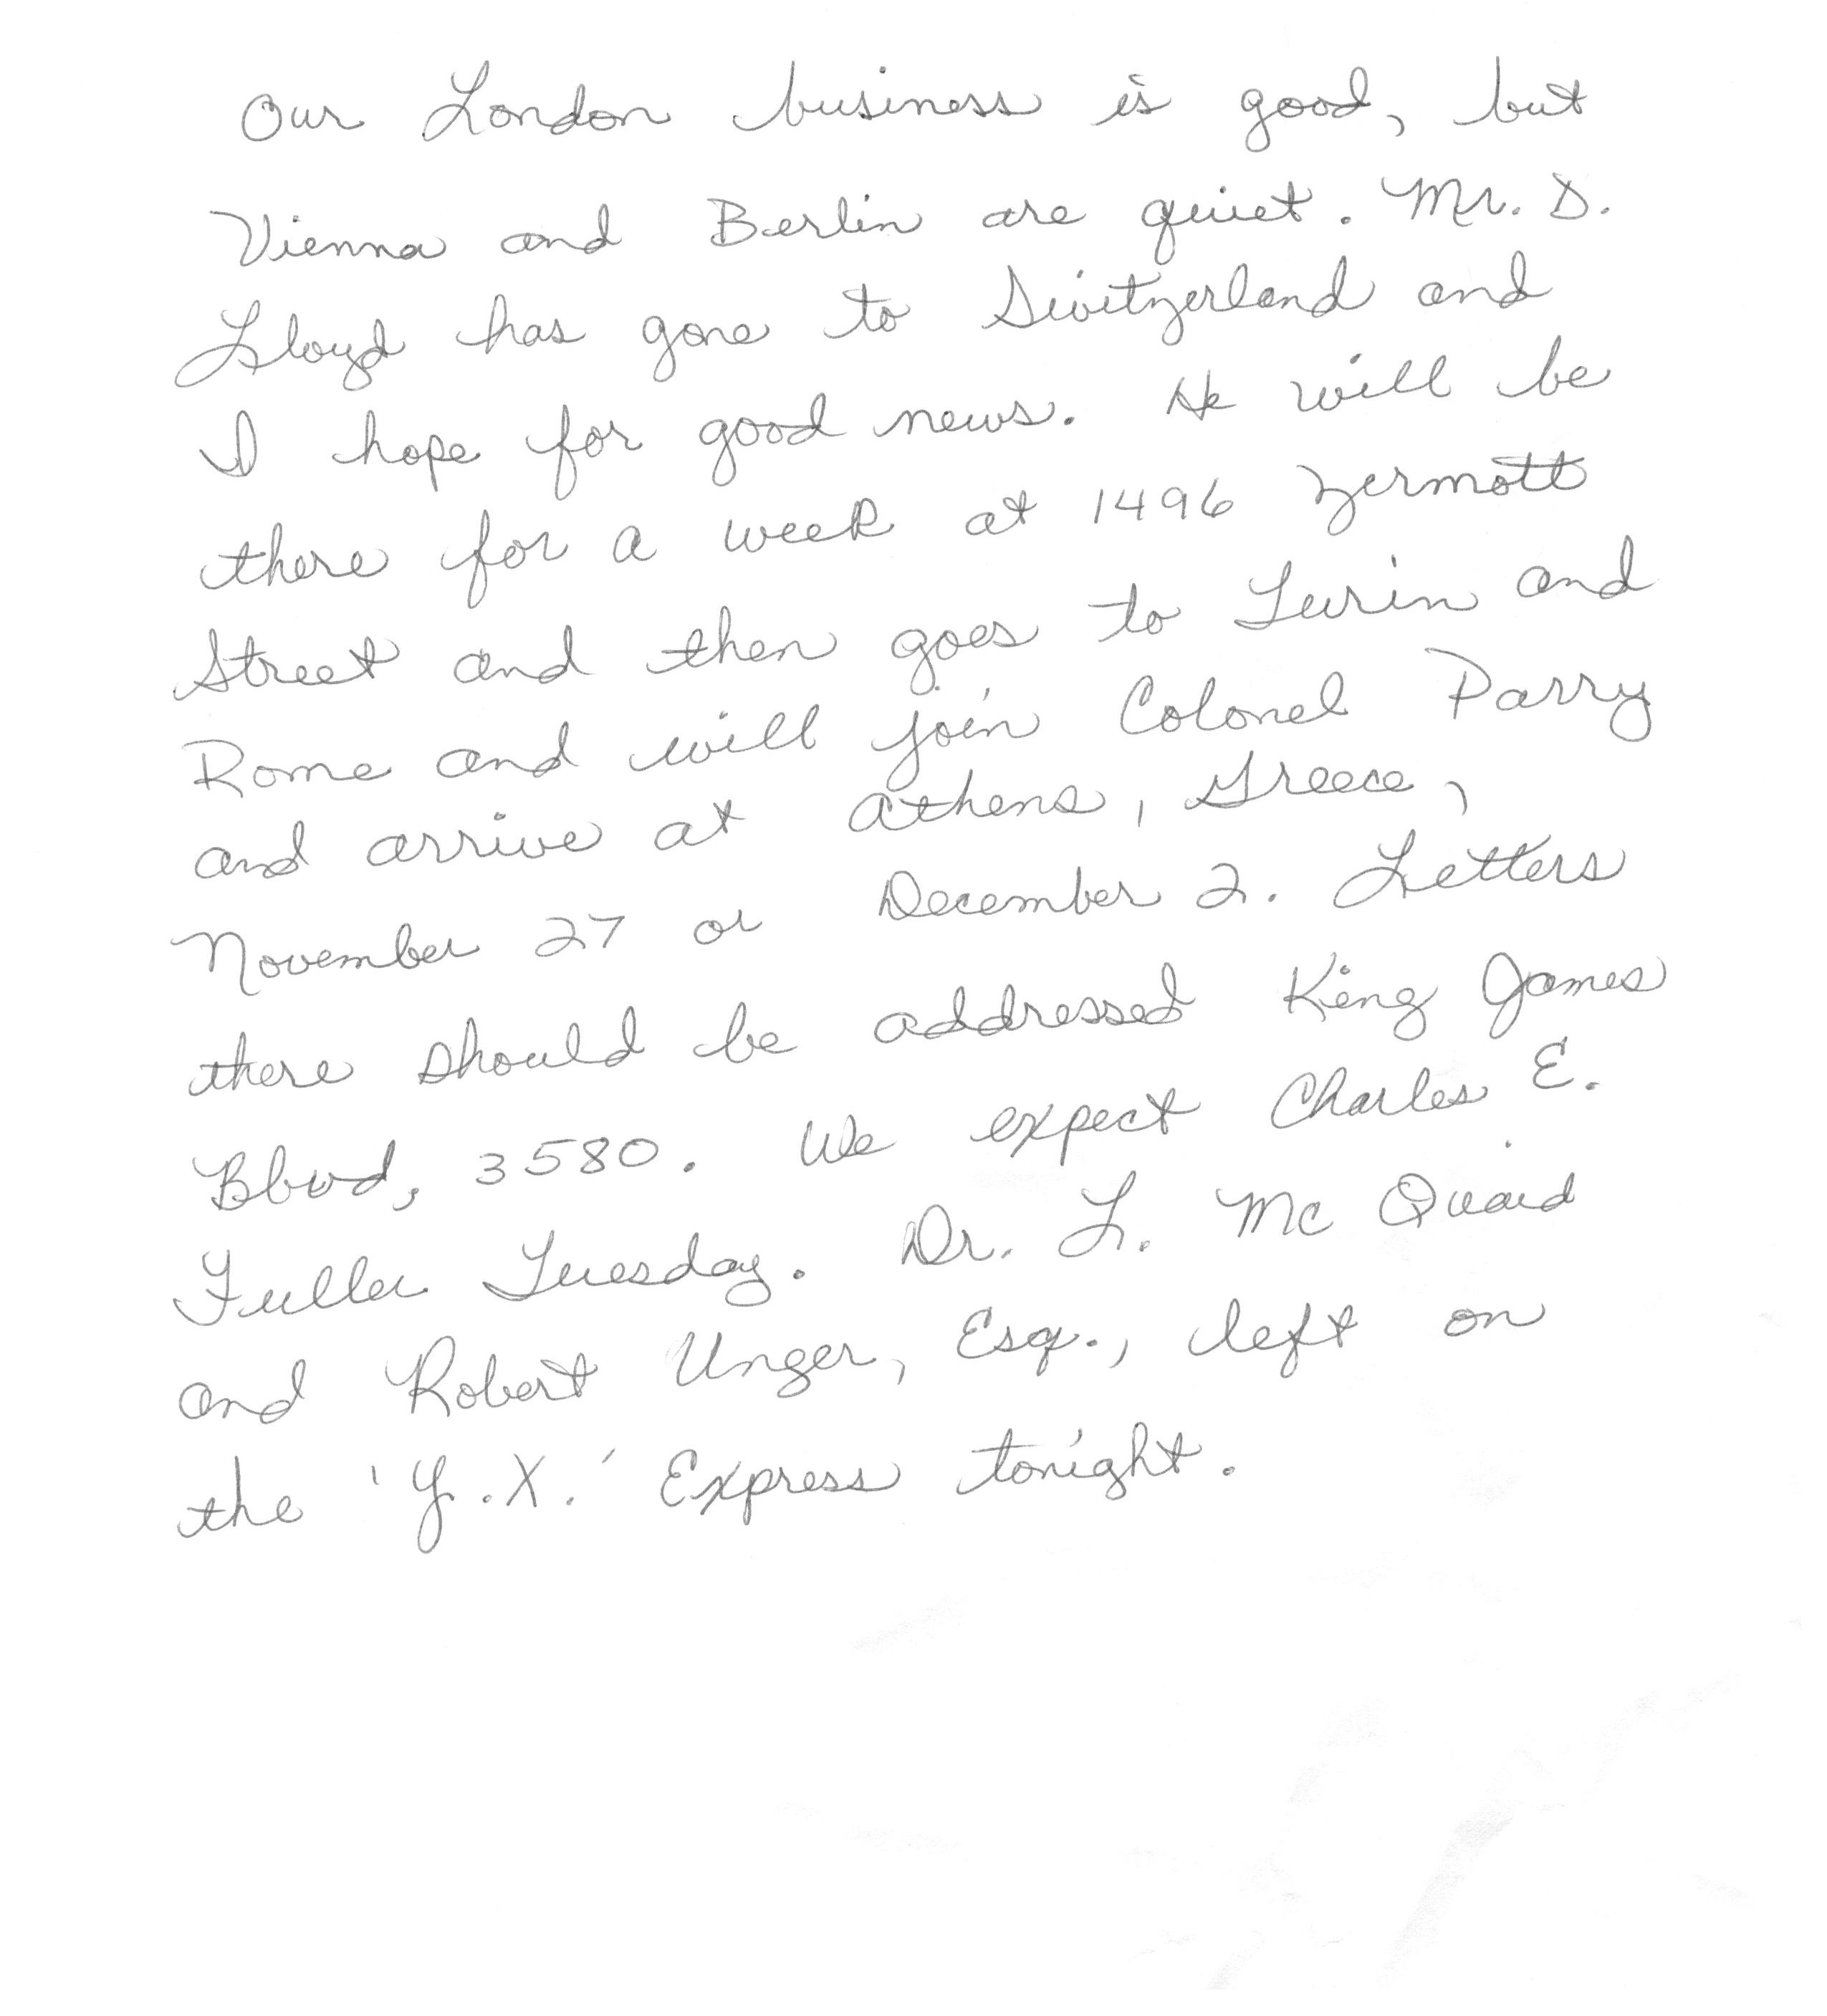 Our London business is good, but
Vienna and Berlin are quiet. Mr. D.
Lloyd has gone to Switzerland and
I hope for good news. He will be
there for a week at 1496 Zermott
Street and then goes to Turin and
Rome and will join Colonel Parry
and arrive at Athens, Greece,
November 27 or December 2. Letters
there should be addressed King James
Blvd, 3580. We expect Charles E.
Fuller Tuesday. Dr. L. Mc Quaid
and Robert Unger, Esq., left on
the 'Y.X.' Express tonight.